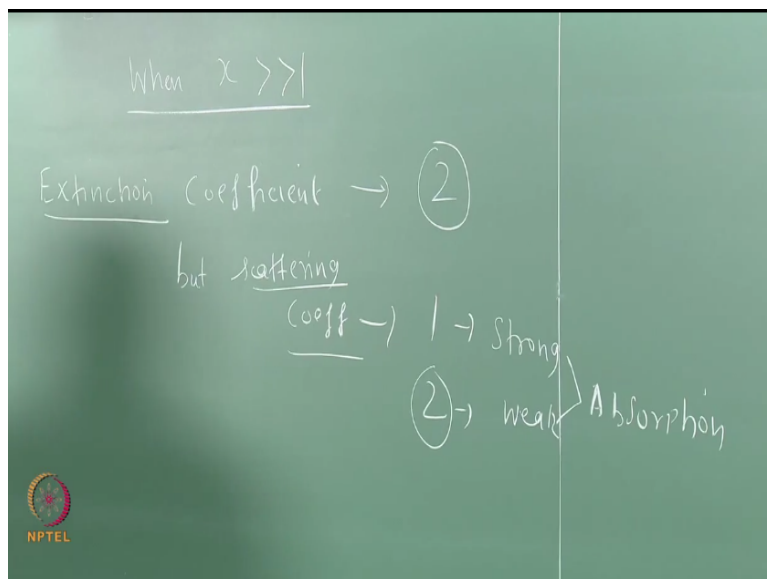 When x >>1
Extinction Coefficient → 2
but scattering
Coeff → 1 → Strong
2 → Weak Absorption
NPTEL